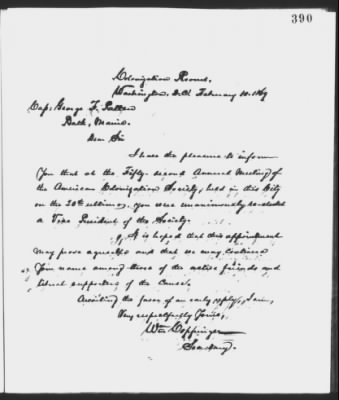 390
Colonization Rooms,
Washington, D.C. February 10. 1869
Capt. George F. Patten
Bath, Maine.
Dear Sir
I have the pleasure to inform
you that at the Fifty-second Annual Meeting of
the American Colonization Society, held in this City
on the 20th ultimo, you were unanimously re-elected
a Vice President of the Society.
It is hoped that this appointment
may prove agreeable and that we may continue
your name among those of the active friends and
liberal supporters of the Cause.
Awaiting the favor of an early reply, I am,
Very respectfully Yours,
Wm Coppinger
Secretary.